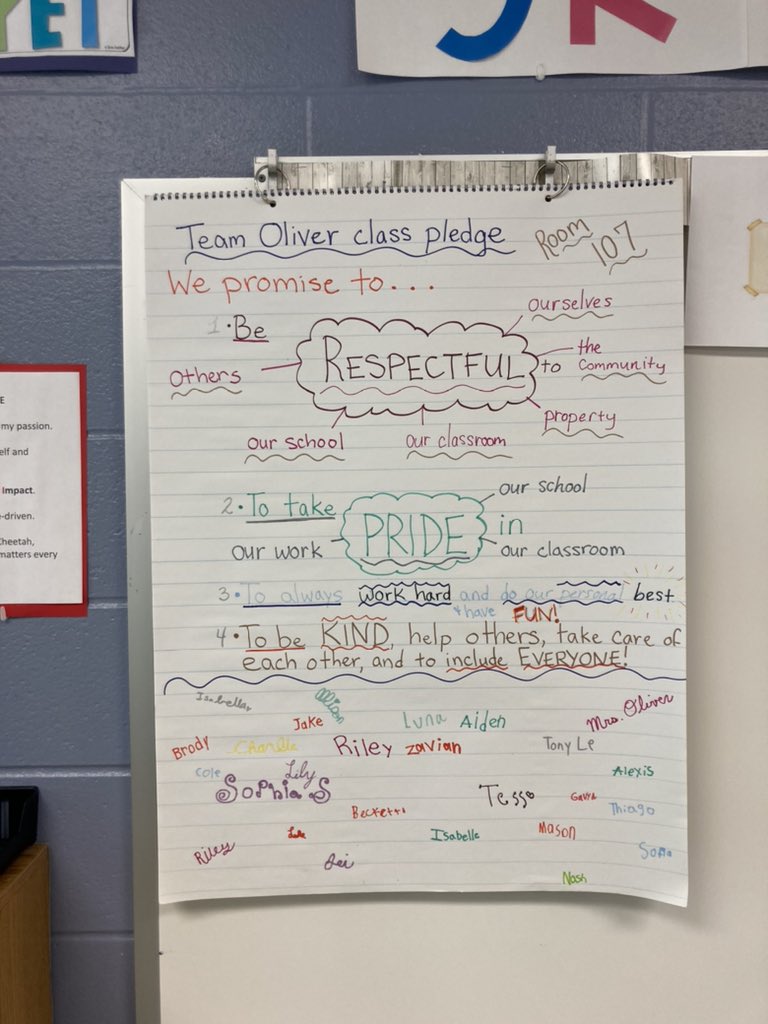 YET
Team Oliver class pledge
Room 107
We promise to...
1. Be
RESPECTFUL to
ourselves
the Community
property
Others
our school
our classroom
2. To take
PRIDE in
our school
our work
our classroom
3. To always work hard and do our personal best
+ have FUN!
4. To be KIND, help others, take care of
each other, and to include EVERYONE!
Isabella
Allison
Jake
Luna
Aiden
Mrs. Oliver
Brody
Charlie
Riley
zavian
Tony Le
Cole
Lily
Alexis
Sophia S
Tess
Thiago
Beckett
Luke
Isabelle
Mason
Riley
Sofia
Nash
E
my passion.
elf and
Impact.
-driven.
Cheetah,
matters every